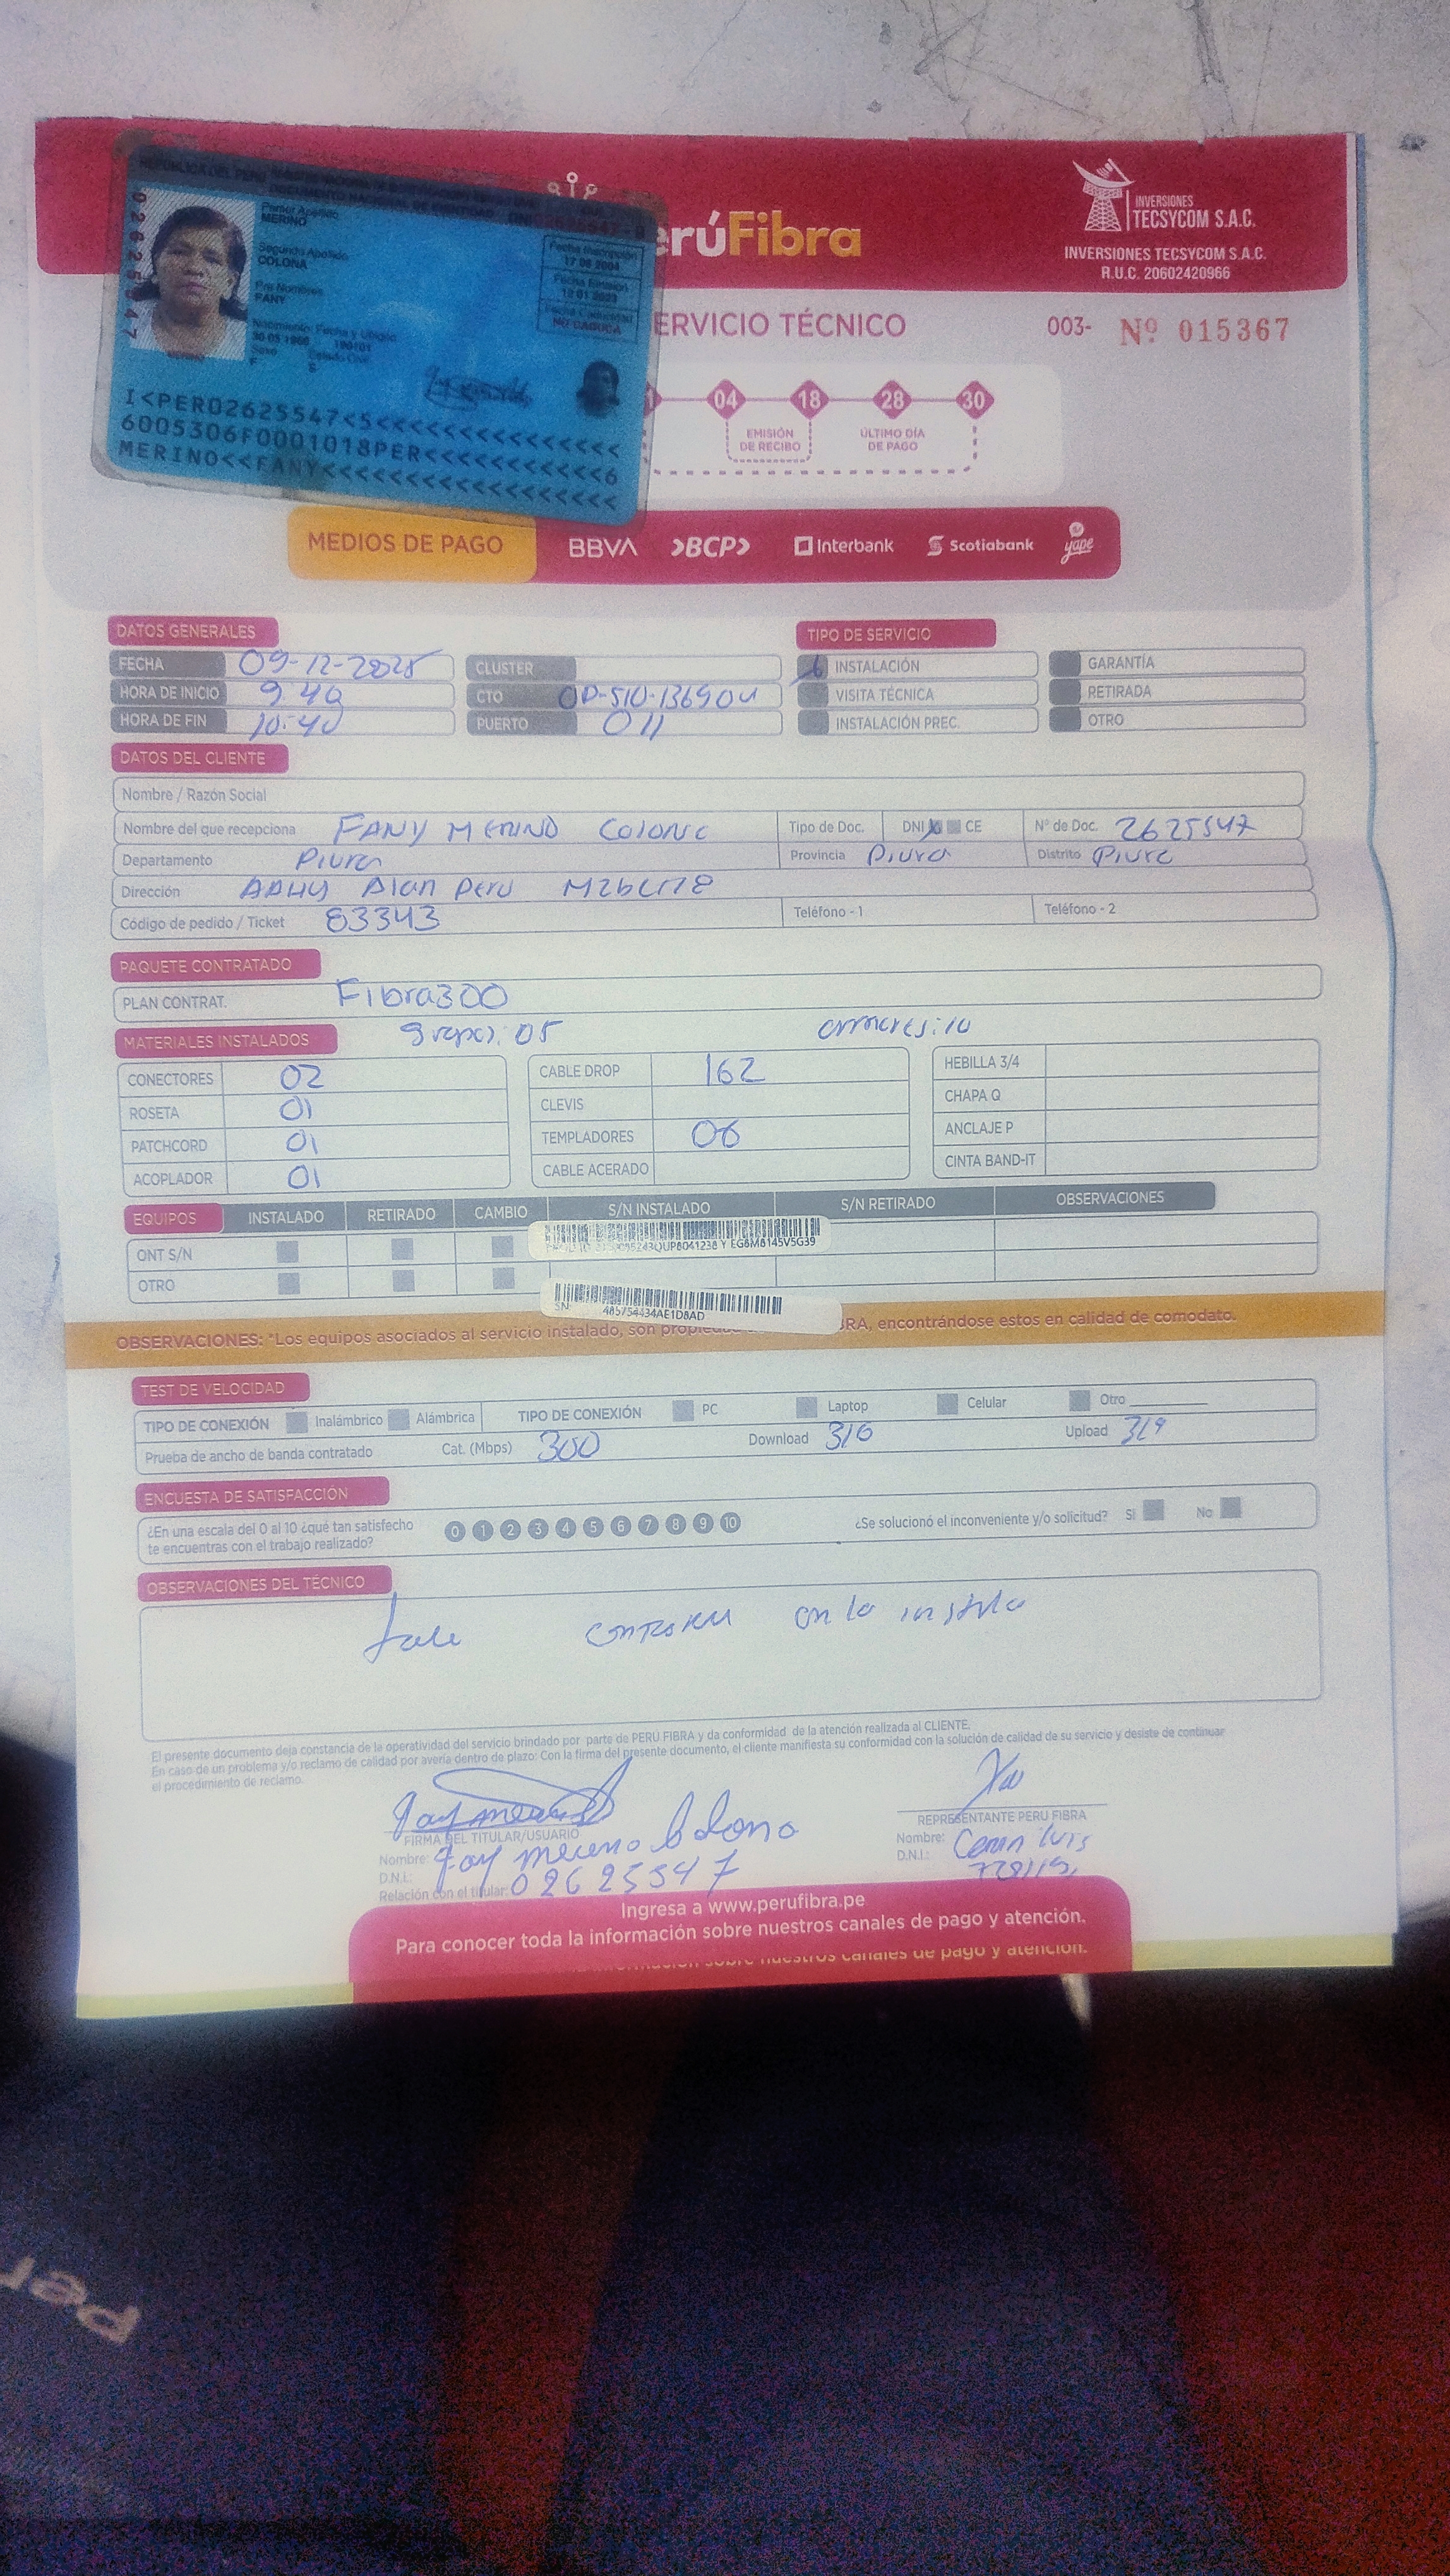 INVERSIONES
TECSYCOM S.A.C.
INVERSIONES TECSYCOM S.A.C.
R.U.C. 20602420966
erúFibra
ERVICIO TÉCNICO
003- Nº 015367
Primer Apellido
MERINO
Segundo Apellido
COLONA
Pre Nombres
FANY
Nacimiento: Fecha y Ubigeo
Sexo
F
Estado Civil
S
Fecha Inscripción
Fecha Emisión
Fecha Caducidad
NO CADUCA
02625547
I<PER02625547<5<<<<<<<<<<<<<<<
6005306F0001018PER<<<<<<<<<<<6
MERINO<<FANY<<<<<<<<<<<<<<<<<<
04 18 28 30
EMISIÓN DE RECIBO
ÚLTIMO DÍA DE PAGO
MEDIOS DE PAGO BBVA >BCP> Interbank Scotiabank yape
DATOS GENERALES
TIPO DE SERVICIO
FECHA 09-12-2025 CLUSTER INSTALACIÓN GARANTÍA
HORA DE INICIO 9:40 CTO VISITA TÉCNICA RETIRADA
HORA DE FIN 10:40 PUERTO 011 INSTALACIÓN PREC. OTRO
DATOS DEL CLIENTE
Nombre / Razón Social
Nombre del que recepciona FANY MERINO COLONA Tipo de Doc. DNI CE Nº de Doc. 2625547
Departamento Piura Provincia Piura Distrito Piura
Dirección AAHH Alan Peru
Código de pedido / Ticket 83343 Teléfono - 1 Teléfono - 2
PAQUETE CONTRATADO
PLAN CONTRAT. Fibra300
MATERIALES INSTALADOS 05 10
CONECTORES 02 CABLE DROP 162 HEBILLA 3/4
ROSETA 01 CLEVIS CHAPA Q
PATCHCORD 01 TEMPLADORES 06 ANCLAJE P
ACOPLADOR 01 CABLE ACERADO CINTA BAND-IT
EQUIPOS INSTALADO RETIRADO CAMBIO S/N INSTALADO S/N RETIRADO OBSERVACIONES
ONT S/N Y EG8M8145V5G39
OTRO
SN: 485754434AE1D8AD
OBSERVACIONES: *Los equipos asociados al servicio instalado, son BRA, encontrándose estos en calidad de comodato.
TEST DE VELOCIDAD
TIPO DE CONEXIÓN Inalámbrico Alámbrica TIPO DE CONEXIÓN PC Laptop Celular Otro
Prueba de ancho de banda contratado Cat. (Mbps) 300 Download 316 Upload 319
ENCUESTA DE SATISFACCIÓN
¿En una escala del 0 al 10 ¿qué tan satisfecho
te encuentras con el trabajo realizado?
0 1 2 3 4 5 6 7 8 9 10
¿Se solucionó el inconveniente y/o solicitud? Si No
OBSERVACIONES DEL TÉCNICO
en la
El presente documento deja constancia de la operatividad del servicio brindado por parte de PERÚ FIBRA y da conformidad de la atención realizada al CLIENTE.
En caso de un problema y/o reclamo de calidad por avería dentro de plazo: Con la firma del presente documento, el cliente manifiesta su conformidad con la solución de calidad de su servicio y desiste de continuar
el procedimiento de reclamo.
FIRMA DEL TITULAR/USUARIO
Nombre:
D.N.I.:
Relación con el titular: 02625547
REPRESENTANTE PERÚ FIBRA
Nombre: Luis
D.N.I.:
Ingresa a www.perufibra.pe
Para conocer toda la información sobre nuestros canales de pago y atención.
sobre nuestros canales de pago y atención.
Per